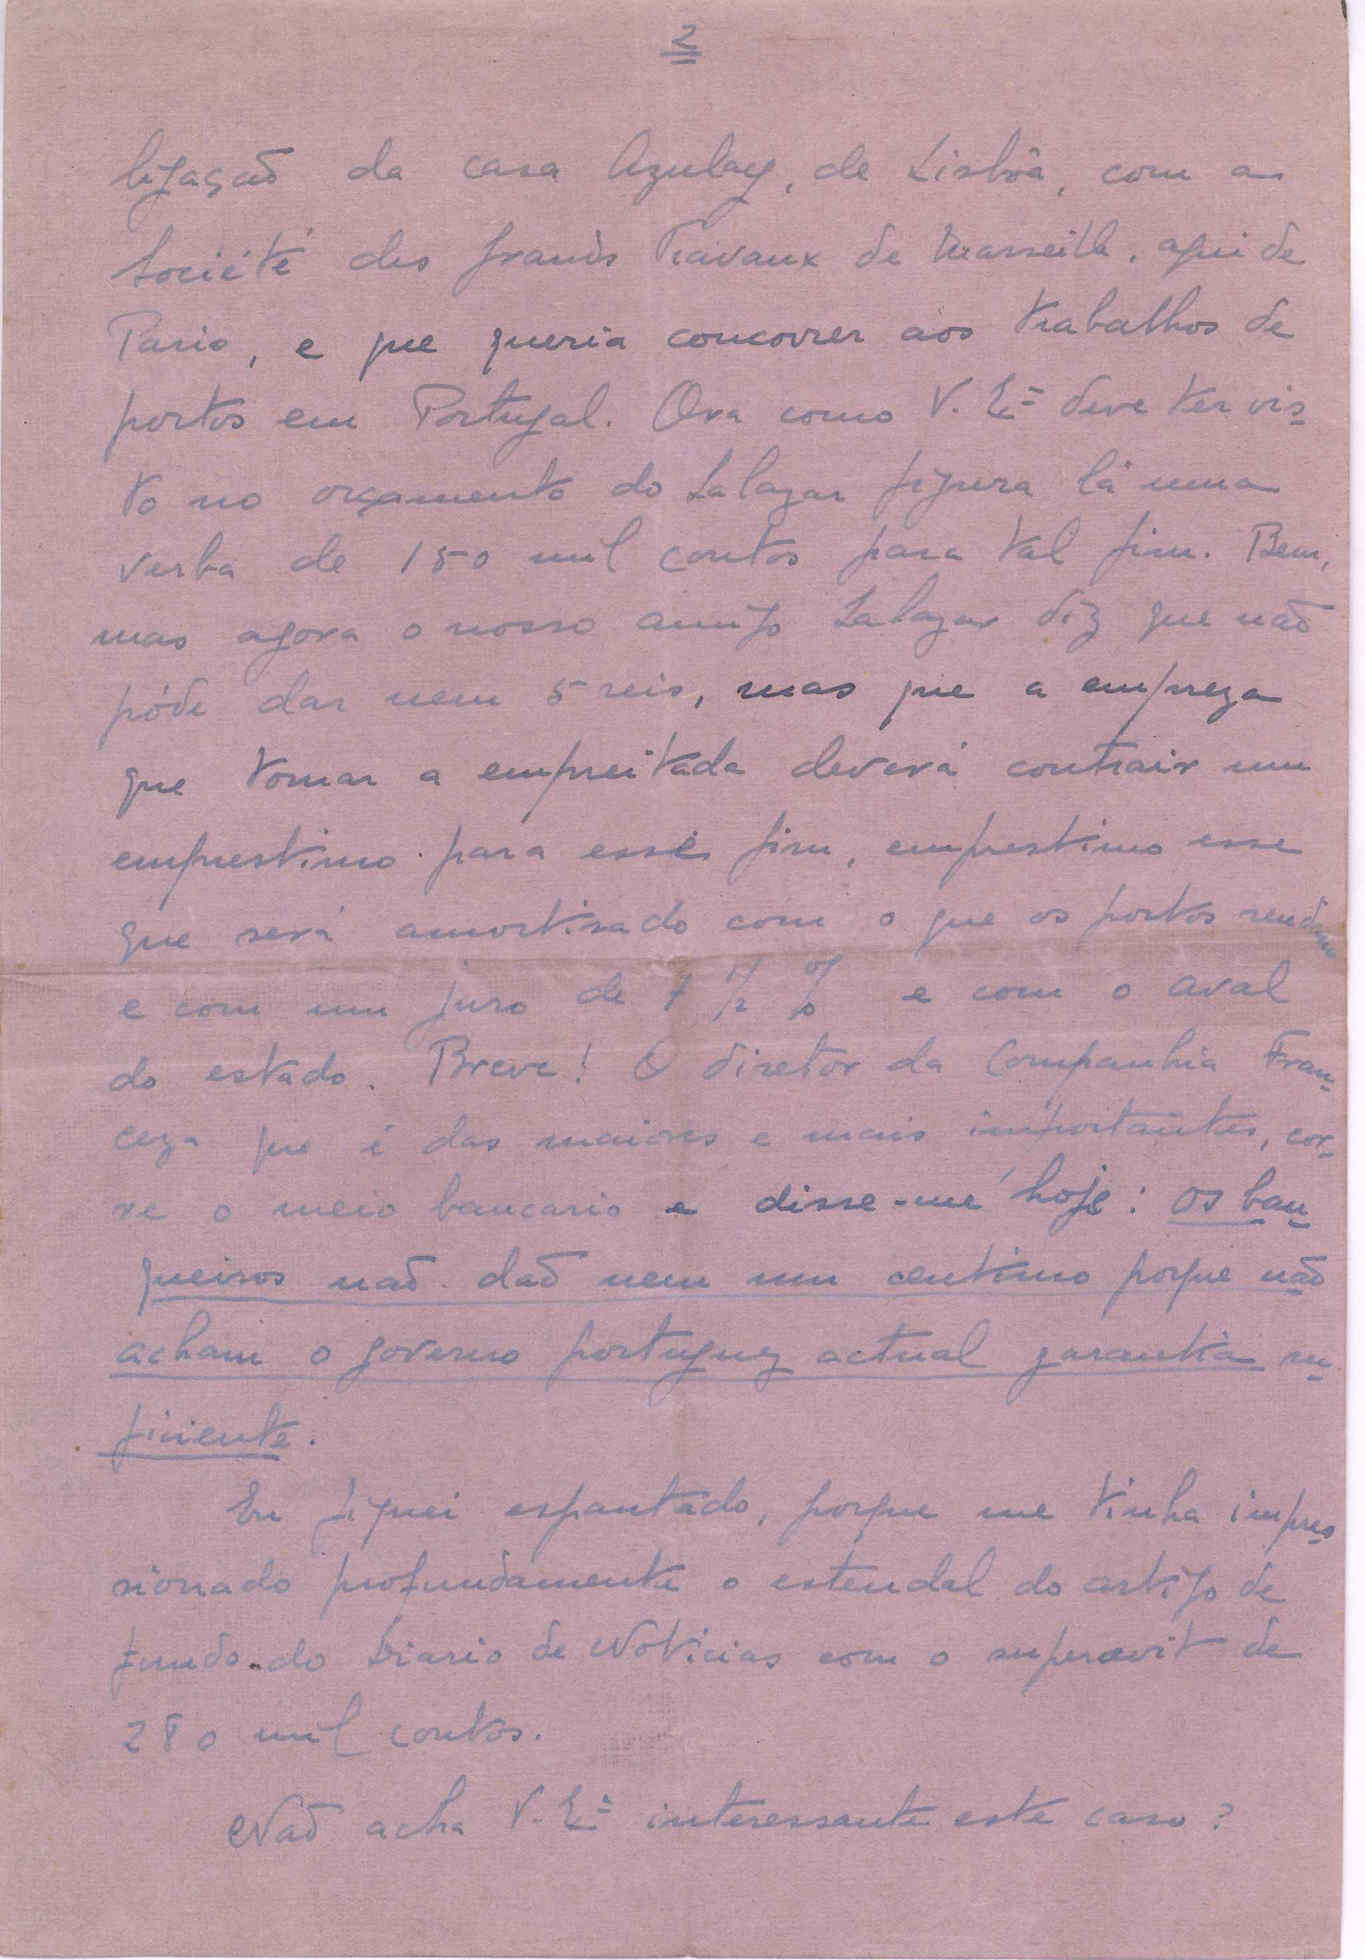 2
ligação da casa Azulay, de Lisbôa, com a
Société des Grands Travaux de Marseille, aqui de
Paris, e que queria concorrer aos trabalhos de
portos em Portugal. Ora como V. Exª deve ter vis-
to no orçamento do Salazar figura lá uma
verba de 150 mil contos para tal fim. Bem,
mas agora o nosso amigo Salazar diz que não
póde dar nem 5 reis, mas que a empreza
que tomar a empreitada deverá contrair um
emprestimo para esse fim, emprestimo esse
que será amortisado com o que os portos rendam
e com um juro de 7 1/2 % e com o aval
do estado. Breve! O diretor da Companhia Fran-
ceza que é das maiores e mais importantes, cor-
re o meio bancario e disse-me hoje: os ban-
queiros não dão nem um centimo porque não
acham o governo portuguez actual garantia su-
ficiente.
Eu fiquei espantado, porque me tinha impres-
sionado profundamente o estendal do artigo de
fundo do Diario de Noticias com o superavit de
280 mil contos.
Não acha V. Exª interessante este caso?